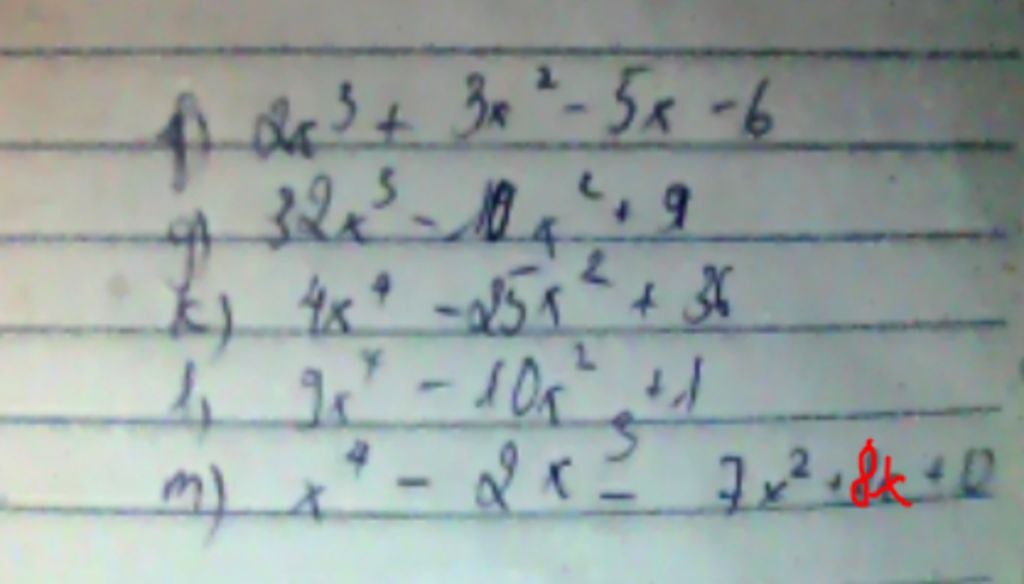 f) 2x³ + 3x² - 5x - 6
g) 32x³ - 10x² + 9
k) 4x⁴ - 25x² + 36
l, 9x⁴ - 10x² + 1
m) x⁴ - 2x³ - 7x² + 8x + 12